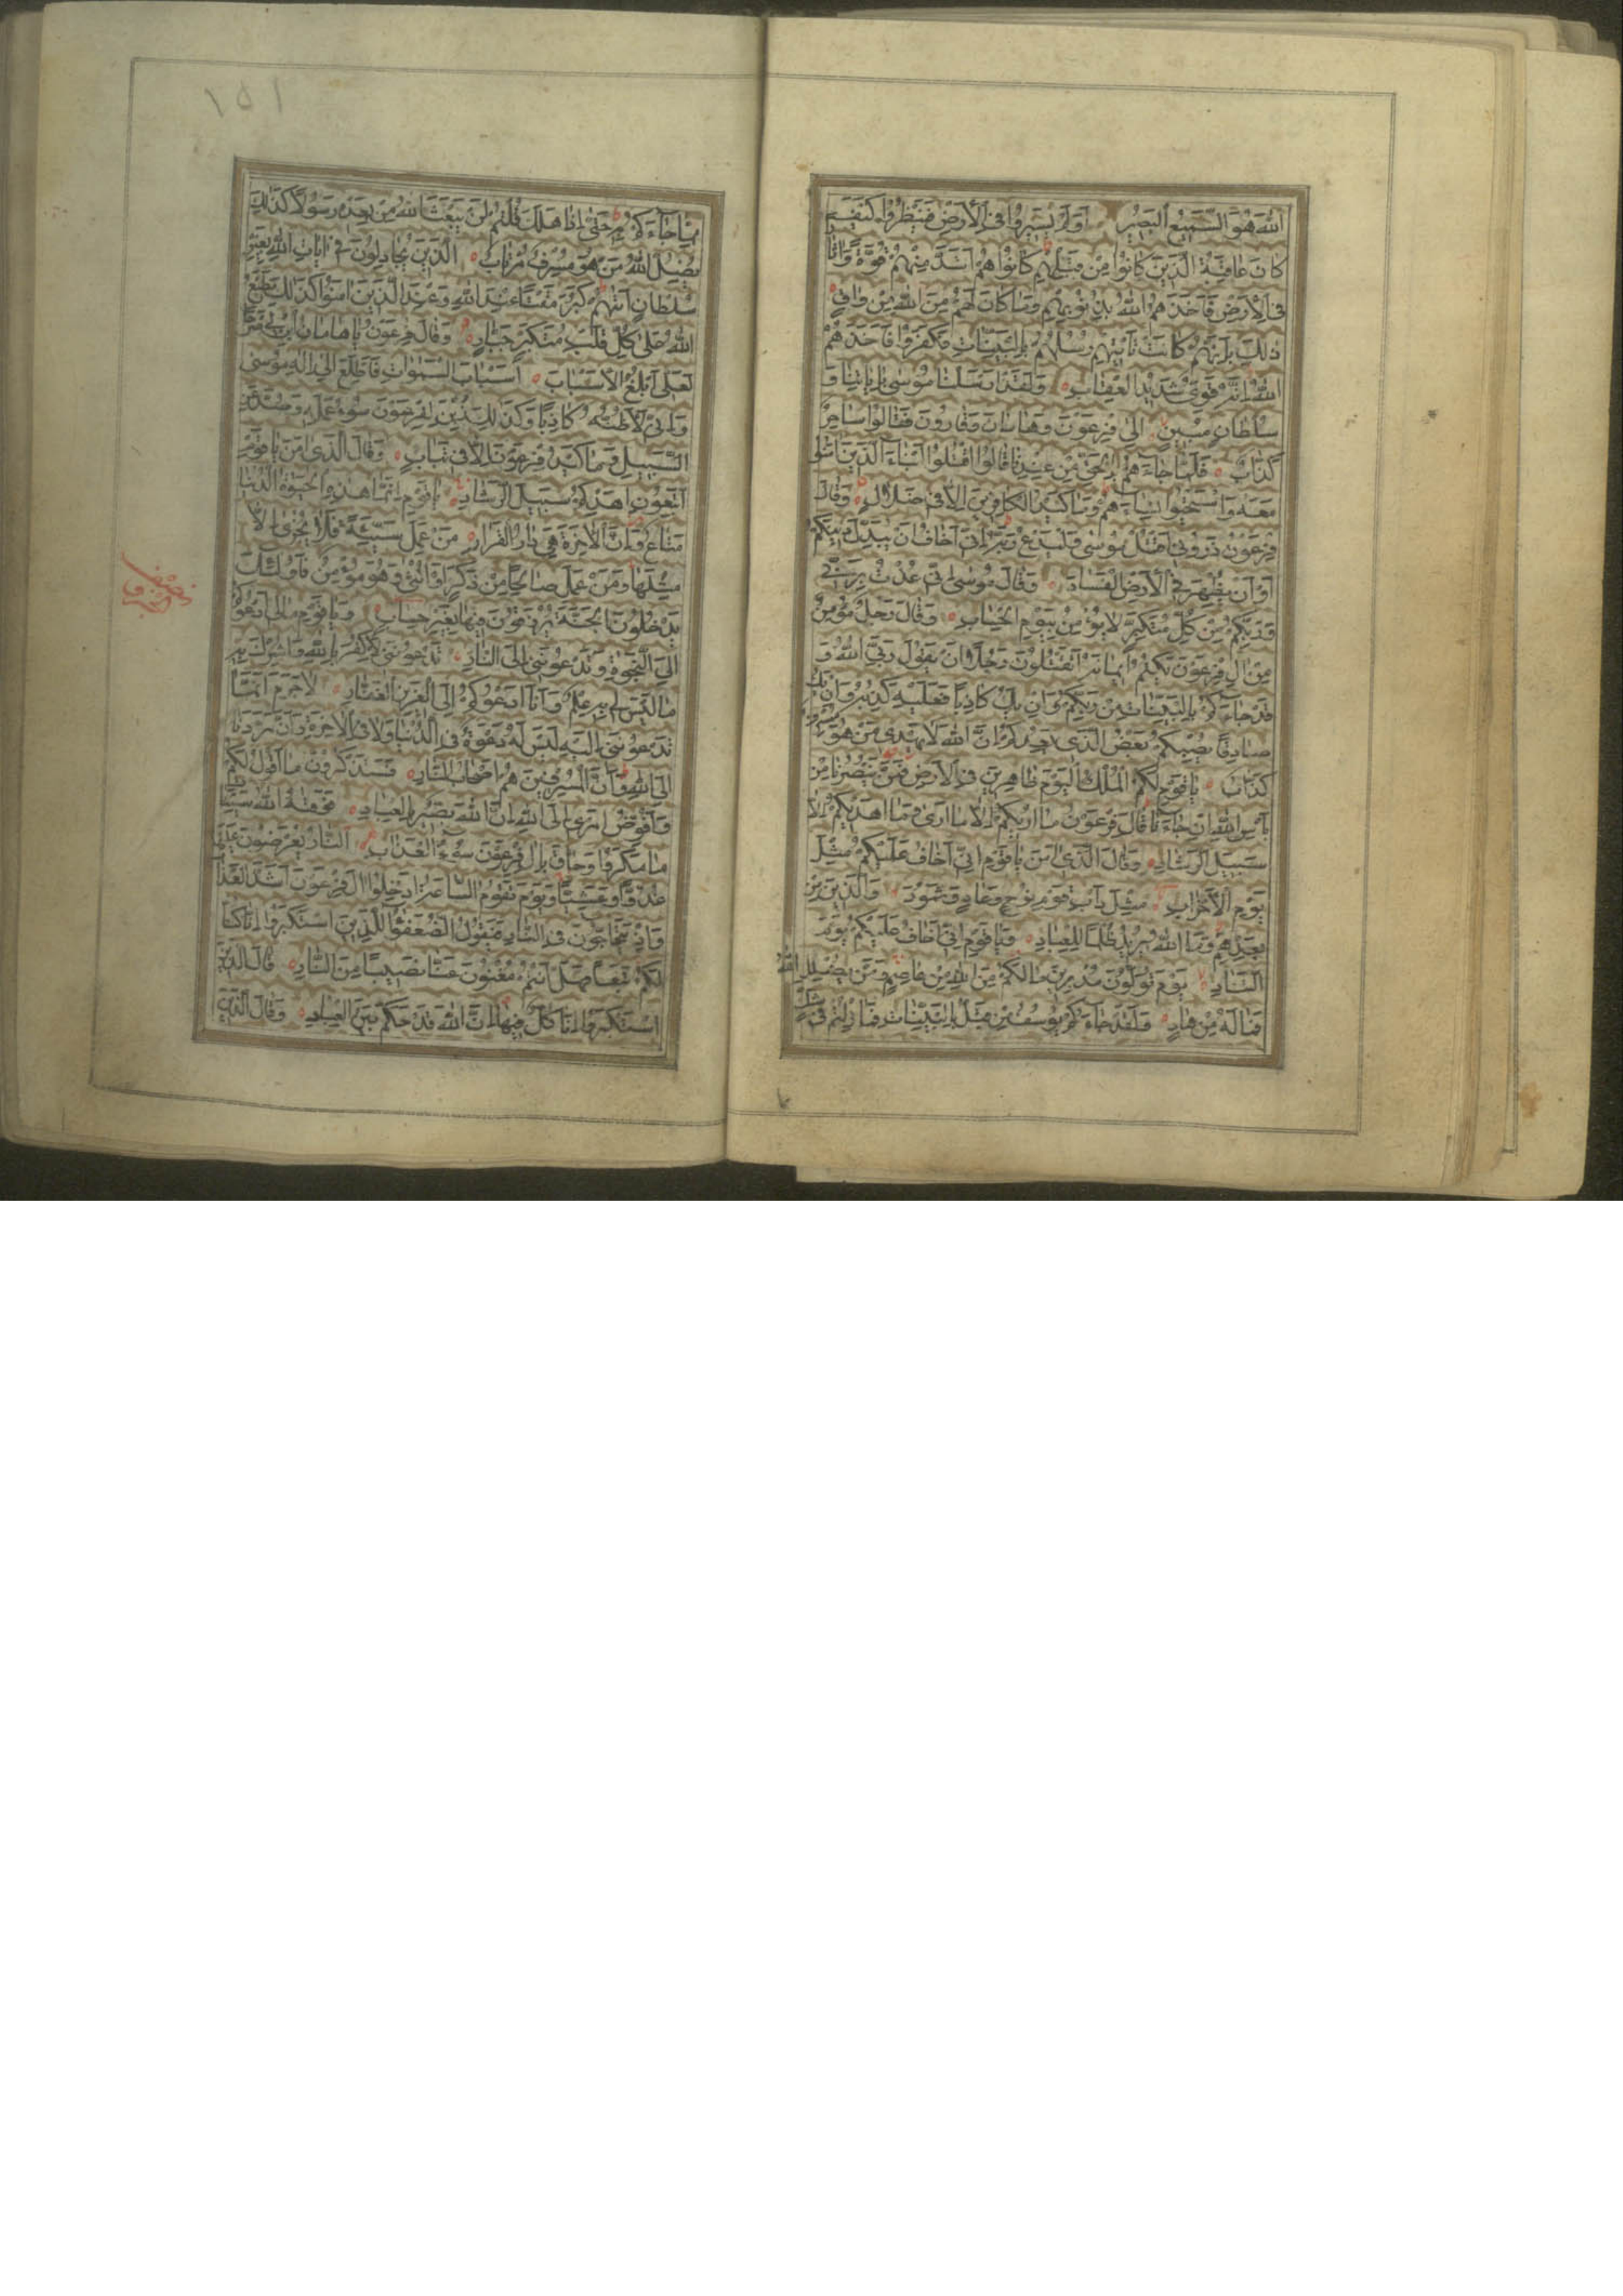 اللّٰهَ هُوَ السَّمِيعُ الْبَصِيرُ اَوَلَمْ يَسِيرُوا فِى الْاَرْضِ فَيَنْظُرُوا كَيْفَ
كَانَ عَاقِبَةُ الَّذِينَ كَانُوا مِنْ قَبْلِهِمْ كَانُوا هُمْ اَشَدَّ مِنْهُمْ قُوَّةً وَاٰثَارًا
فِى الْاَرْضِ فَاَخَذَهُمُ اللّٰهُ بِذُنُوبِهِمْ وَمَا كَانَ لَهُمْ مِنَ اللّٰهِ مِنْ وَاقٍ
ذٰلِكَ بِاَنَّهُمْ كَانَتْ تَاْتِيهِمْ رُسُلُهُمْ بِالْبَيِّنَاتِ فَكَفَرُوا فَاَخَذَهُمُ
اللّٰهُ اِنَّهُ قَوِىٌّ شَدِيدُ الْعِقَابِ وَلَقَدْ اَرْسَلْنَا مُوسٰى بِاٰيَاتِنَا وَ
سُلْطَانٍ مُبِينٍ اِلٰى فِرْعَوْنَ وَهَامَانَ وَقَارُونَ فَقَالُوا سَاحِرٌ
كَذَّابٌ فَلَمَّا جَاۤءَهُمْ بِالْحَقِّ مِنْ عِنْدِنَا قَالُوا اقْتُلُوا اَبْنَاۤءَ الَّذِينَ اٰمَنُوا
مَعَهُ وَاسْتَحْيُوا نِسَاۤءَهُمْ وَمَا كَيْدُ الْكَافِرِينَ اِلَّا فِى ضَلَالٍ وَقَالَ
فِرْعَوْنُ ذَرُونِى اَقْتُلْ مُوسٰى وَلْيَدْعُ رَبَّهُ اِنِّى اَخَافُ اَنْ يُبَدِّلَ دِينَكُمْ
اَوْ اَنْ يُظْهِرَ فِى الْاَرْضِ الْفَسَادَ وَقَالَ مُوسٰى اِنِّى عُذْتُ بِرَبِّى
وَرَبِّكُمْ مِنْ كُلِّ مُتَكَبِّرٍ لَا يُؤْمِنُ بِيَوْمِ الْحِسَابِ وَقَالَ رَجُلٌ مُؤْمِنٌ
مِنْ اٰلِ فِرْعَوْنَ يَكْتُمُ اِيمَانَهُ اَتَقْتُلُونَ رَجُلًا اَنْ يَقُولَ رَبِّىَ اللّٰهُ وَ
قَدْ جَاۤءَكُمْ بِالْبَيِّنَاتِ مِنْ رَبِّكُمْ وَاِنْ يَكُ كَاذِبًا فَعَلَيْهِ كَذِبُهُ وَاِنْ يَكُ
صَادِقًا يُصِبْكُمْ بَعْضُ الَّذِى يَعِدُكُمْ اِنَّ اللّٰهَ لَا يَهْدِى مَنْ هُوَ مُسْرِفٌ
كَذَّابٌ يَا قَوْمِ لَكُمُ الْمُلْكُ الْيَوْمَ ظَاهِرِينَ فِى الْاَرْضِ فَمَنْ يَنْصُرُنَا مِنْ
بَاْسِ اللّٰهِ اِنْ جَاۤءَنَا قَالَ فِرْعَوْنُ مَا اُرِيكُمْ اِلَّا مَا اَرٰى وَمَا اَهْدِيكُمْ اِلَّا
سَبِيلَ الرَّشَادِ وَقَالَ الَّذِى اٰمَنَ يَا قَوْمِ اِنِّى اَخَافُ عَلَيْكُمْ مِثْلَ
يَوْمِ الْاَحْزَابِ مِثْلَ دَاْبِ قَوْمِ نُوحٍ وَعَادٍ وَثَمُودَ وَالَّذِينَ مِنْ
بَعْدِهِمْ وَمَا اللّٰهُ يُرِيدُ ظُلْمًا لِلْعِبَادِ وَيَا قَوْمِ اِنِّى اَخَافُ عَلَيْكُمْ يَوْمَ
التَّنَادِ يَوْمَ تُوَلُّونَ مُدْبِرِينَ مَا لَكُمْ مِنَ اللّٰهِ مِنْ عَاصِمٍ وَمَنْ يُضْلِلِ اللّٰهُ
فَمَا لَهُ مِنْ هَادٍ وَلَقَدْ جَاۤءَكُمْ يُوسُفُ مِنْ قَبْلُ بِالْبَيِّنَاتِ فَمَا زِلْتُمْ فِى شَكٍّ
١٥١
مِمَّا جَاۤءَكُمْ بِهِ حَتّٰى اِذَا هَلَكَ قُلْتُمْ لَنْ يَبْعَثَ اللّٰهُ مِنْ بَعْدِهِ رَسُولًا كَذٰلِكَ
يُضِلُّ اللّٰهُ مَنْ هُوَ مُسْرِفٌ مُرْتَابٌ الَّذِينَ يُجَادِلُونَ فِى اٰيَاتِ اللّٰهِ بِغَيْرِ
سُلْطَانٍ اَتٰيهُمْ كَبُرَ مَقْتًا عِنْدَ اللّٰهِ وَعِنْدَ الَّذِينَ اٰمَنُوا كَذٰلِكَ يَطْبَعُ
اللّٰهُ عَلٰى كُلِّ قَلْبِ مُتَكَبِّرٍ جَبَّارٍ وَقَالَ فِرْعَوْنُ يَا هَامَانُ ابْنِ لِى صَرْحًا
لَعَلِّى اَبْلُغُ الْاَسْبَابَ اَسْبَابَ السَّمٰوَاتِ فَاَطَّلِعَ اِلٰى اِلٰهِ مُوسٰى
وَاِنِّى لَاَظُنُّهُ كَاذِبًا وَكَذٰلِكَ زُيِّنَ لِفِرْعَوْنَ سُوءُ عَمَلِهِ وَصُدَّ عَنِ
السَّبِيلِ وَمَا كَيْدُ فِرْعَوْنَ اِلَّا فِى تَبَابٍ وَقَالَ الَّذِى اٰمَنَ يَا قَوْمِ
اتَّبِعُونِ اَهْدِكُمْ سَبِيلَ الرَّشَادِ يَا قَوْمِ اِنَّمَا هٰذِهِ الْحَيٰوةُ الدُّنْيَا
مَتَاعٌ وَاِنَّ الْاٰخِرَةَ هِىَ دَارُ الْقَرَارِ مَنْ عَمِلَ سَيِّئَةً فَلَا يُجْزٰى اِلَّا
مِثْلَهَا وَمَنْ عَمِلَ صَالِحًا مِنْ ذَكَرٍ اَوْ اُنْثٰى وَهُوَ مُؤْمِنٌ فَاُولٰئِكَ
يَدْخُلُونَ الْجَنَّةَ يُرْزَقُونَ فِيهَا بِغَيْرِ حِسَابٍ وَيَا قَوْمِ مَا لِى اَدْعُوكُمْ
اِلَى النَّجٰوةِ وَتَدْعُونَنِى اِلَى النَّارِ تَدْعُونَنِى لِاَكْفُرَ بِاللّٰهِ وَاُشْرِكَ بِهِ
مَا لَيْسَ لِى بِهِ عِلْمٌ وَاَنَا اَدْعُوكُمْ اِلَى الْعَزِيزِ الْغَفَّارِ لَا جَرَمَ اَنَّمَا
تَدْعُونَنِى اِلَيْهِ لَيْسَ لَهُ دَعْوَةٌ فِى الدُّنْيَا وَلَا فِى الْاٰخِرَةِ وَاَنَّ مَرَدَّنَا
اِلَى اللّٰهِ وَاَنَّ الْمُسْرِفِينَ هُمْ اَصْحَابُ النَّارِ فَسَتَذْكُرُونَ مَا اَقُولُ لَكُمْ
وَاُفَوِّضُ اَمْرِى اِلَى اللّٰهِ اِنَّ اللّٰهَ بَصِيرٌ بِالْعِبَادِ فَوَقٰيهُ اللّٰهُ سَيِّئَاتِ
مَا مَكَرُوا وَحَاقَ بِاٰلِ فِرْعَوْنَ سُوءُ الْعَذَابِ اَلنَّارُ يُعْرَضُونَ عَلَيْهَا
غُدُوًّا وَعَشِيًّا وَيَوْمَ تَقُومُ السَّاعَةُ اَدْخِلُوا اٰلَ فِرْعَوْنَ اَشَدَّ الْعَذَابِ
وَاِذْ يَتَحَاجُّونَ فِى النَّارِ فَيَقُولُ الضُّعَفٰۤؤُا لِلَّذِينَ اسْتَكْبَرُوا اِنَّا كُنَّا
لَكُمْ تَبَعًا فَهَلْ اَنْتُمْ مُغْنُونَ عَنَّا نَصِيبًا مِنَ النَّارِ قَالَ الَّذِينَ
اسْتَكْبَرُوا اِنَّا كُلٌّ فِيهَا اِنَّ اللّٰهَ قَدْ حَكَمَ بَيْنَ الْعِبَادِ وَقَالَ الَّذِينَ